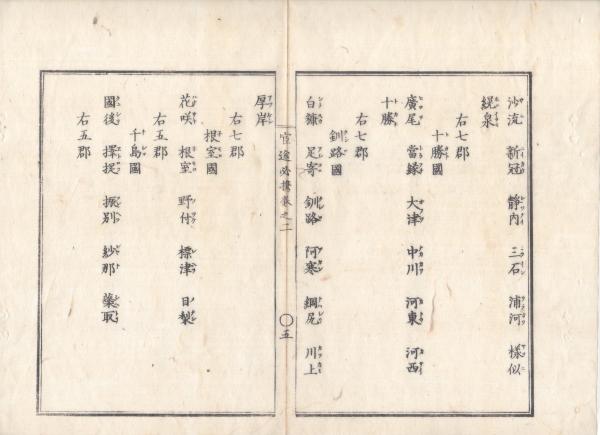 沙流 新冠 靜內 三石 浦河 樣似
幌泉
右七郡
十勝國
廣尾 當縁 大津 中川 河東 河西
十勝
右七郡
釧路國
白糠 足寄 釧路 阿寒 網尻 川上
官途必携巻之二
〇五
厚岸
右七郡
根室國
花咲 根室 野付 標津 目梨
右五郡
千島國
國後 擇捉 振別 紗那 蘂取
右五郡